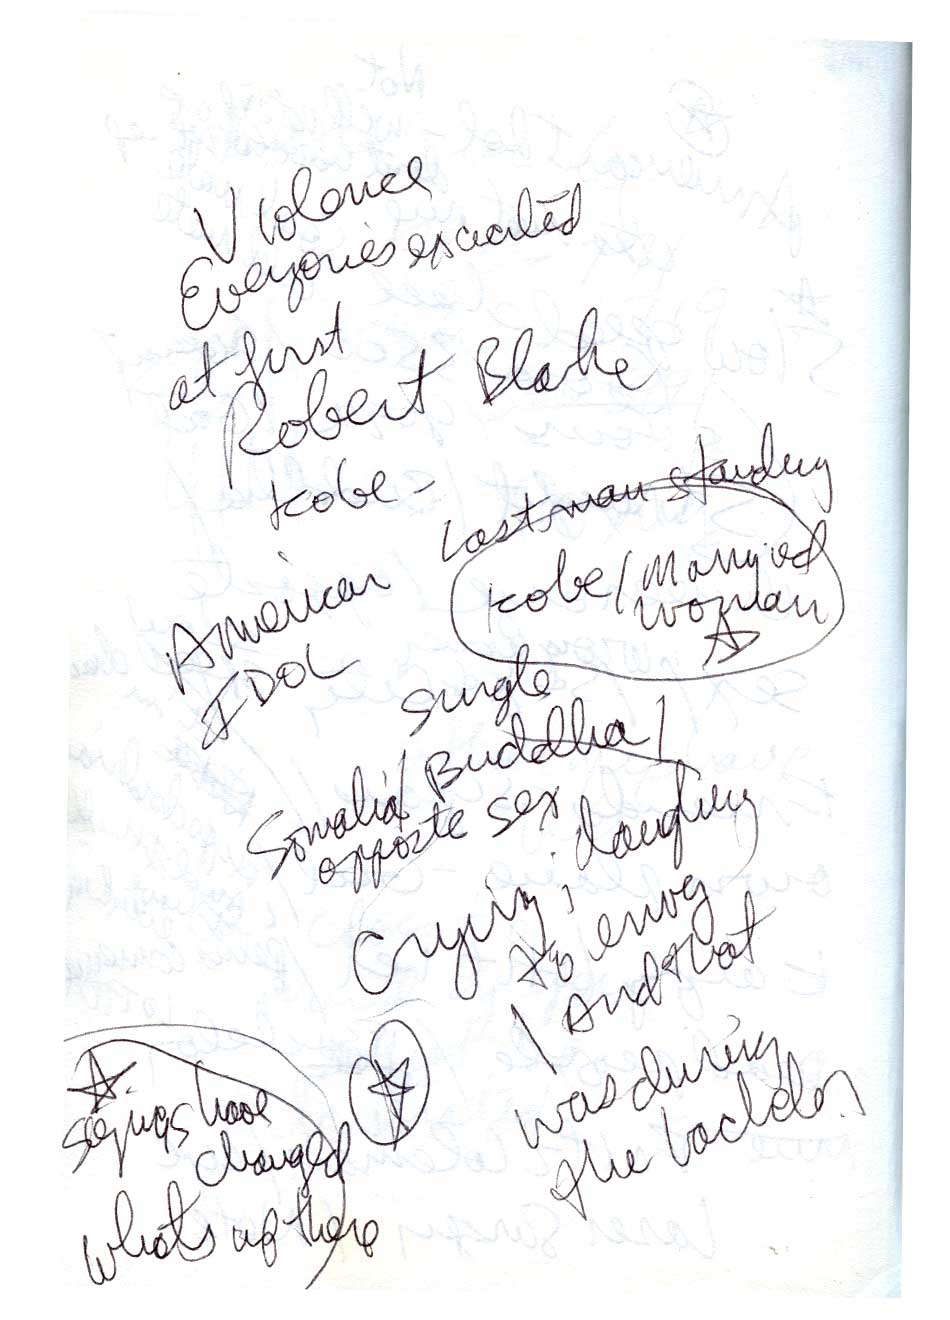 Violence
Everyone's excited
at first
Robert Blake
Kobe -
Last man standing
Kobe / Married
woman
American
IDOL
single
Somalia / Buddha /
opposite sex
laughing
Crying,
to envy
/ And that
was during
the
sayings have
changed
what's up there